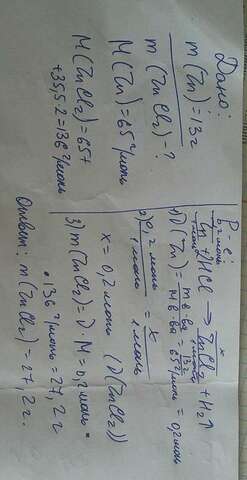 Дано:
m(Zn)=13г
m(ZnCl₂)-?
M(Zn)=65г/моль
M(ZnCl₂)=65+
+35,5·2=136г/моль
Р-е:
0,2 моль x
Zn+2HCl → ZnCl₂+H₂↑
1 моль 1 моль
1) ν(Zn) = m в-ва / M в-ва = 13г / 65г/моль = 0,2 моль
2) 0,2 моль / 1 моль = x / 1 моль
x = 0,2 моль (ν(ZnCl₂))
3) m(ZnCl₂)=ν·M=0,2 моль·
·136г/моль=27,2г
Ответ: m(ZnCl₂)=27,2г.